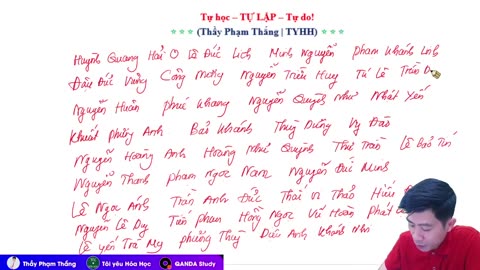 Tự học – TỰ LẬP – Tự do!
(Thầy Phạm Thắng | TYHH)
Huỳnh Quang Hải Võ Đức Lịch Minh Nguyễn Phạm Khánh Linh
Đậu Đức Vững Công Nguyễn Triều Huy Tú Lê Trần
Nguyễn Huân Phúc Khang Nguyễn Quỳnh Như Nhật Yến
Khuất Phương Anh Bảo Khánh Thuỳ Dương Vy Đào
Nguyễn Hoàng Anh Hoàng Như Quỳnh Thư Trần Lê Bảo
Nguyễn Thanh Phạm Ngọc Nam Nguyễn Đức Minh
Lê Ngọc Anh Trần Anh Đức Thái Vi Thảo
Nguyen Lê Duy Tiến Phạm Hồng Ngọc Vũ Hoàn Phát
Lê Yến Trà My Phương Thuỳ Đức Anh Khánh Nhi
Thầy Phạm Thắng Tôi yêu Hóa Học QANDA Study